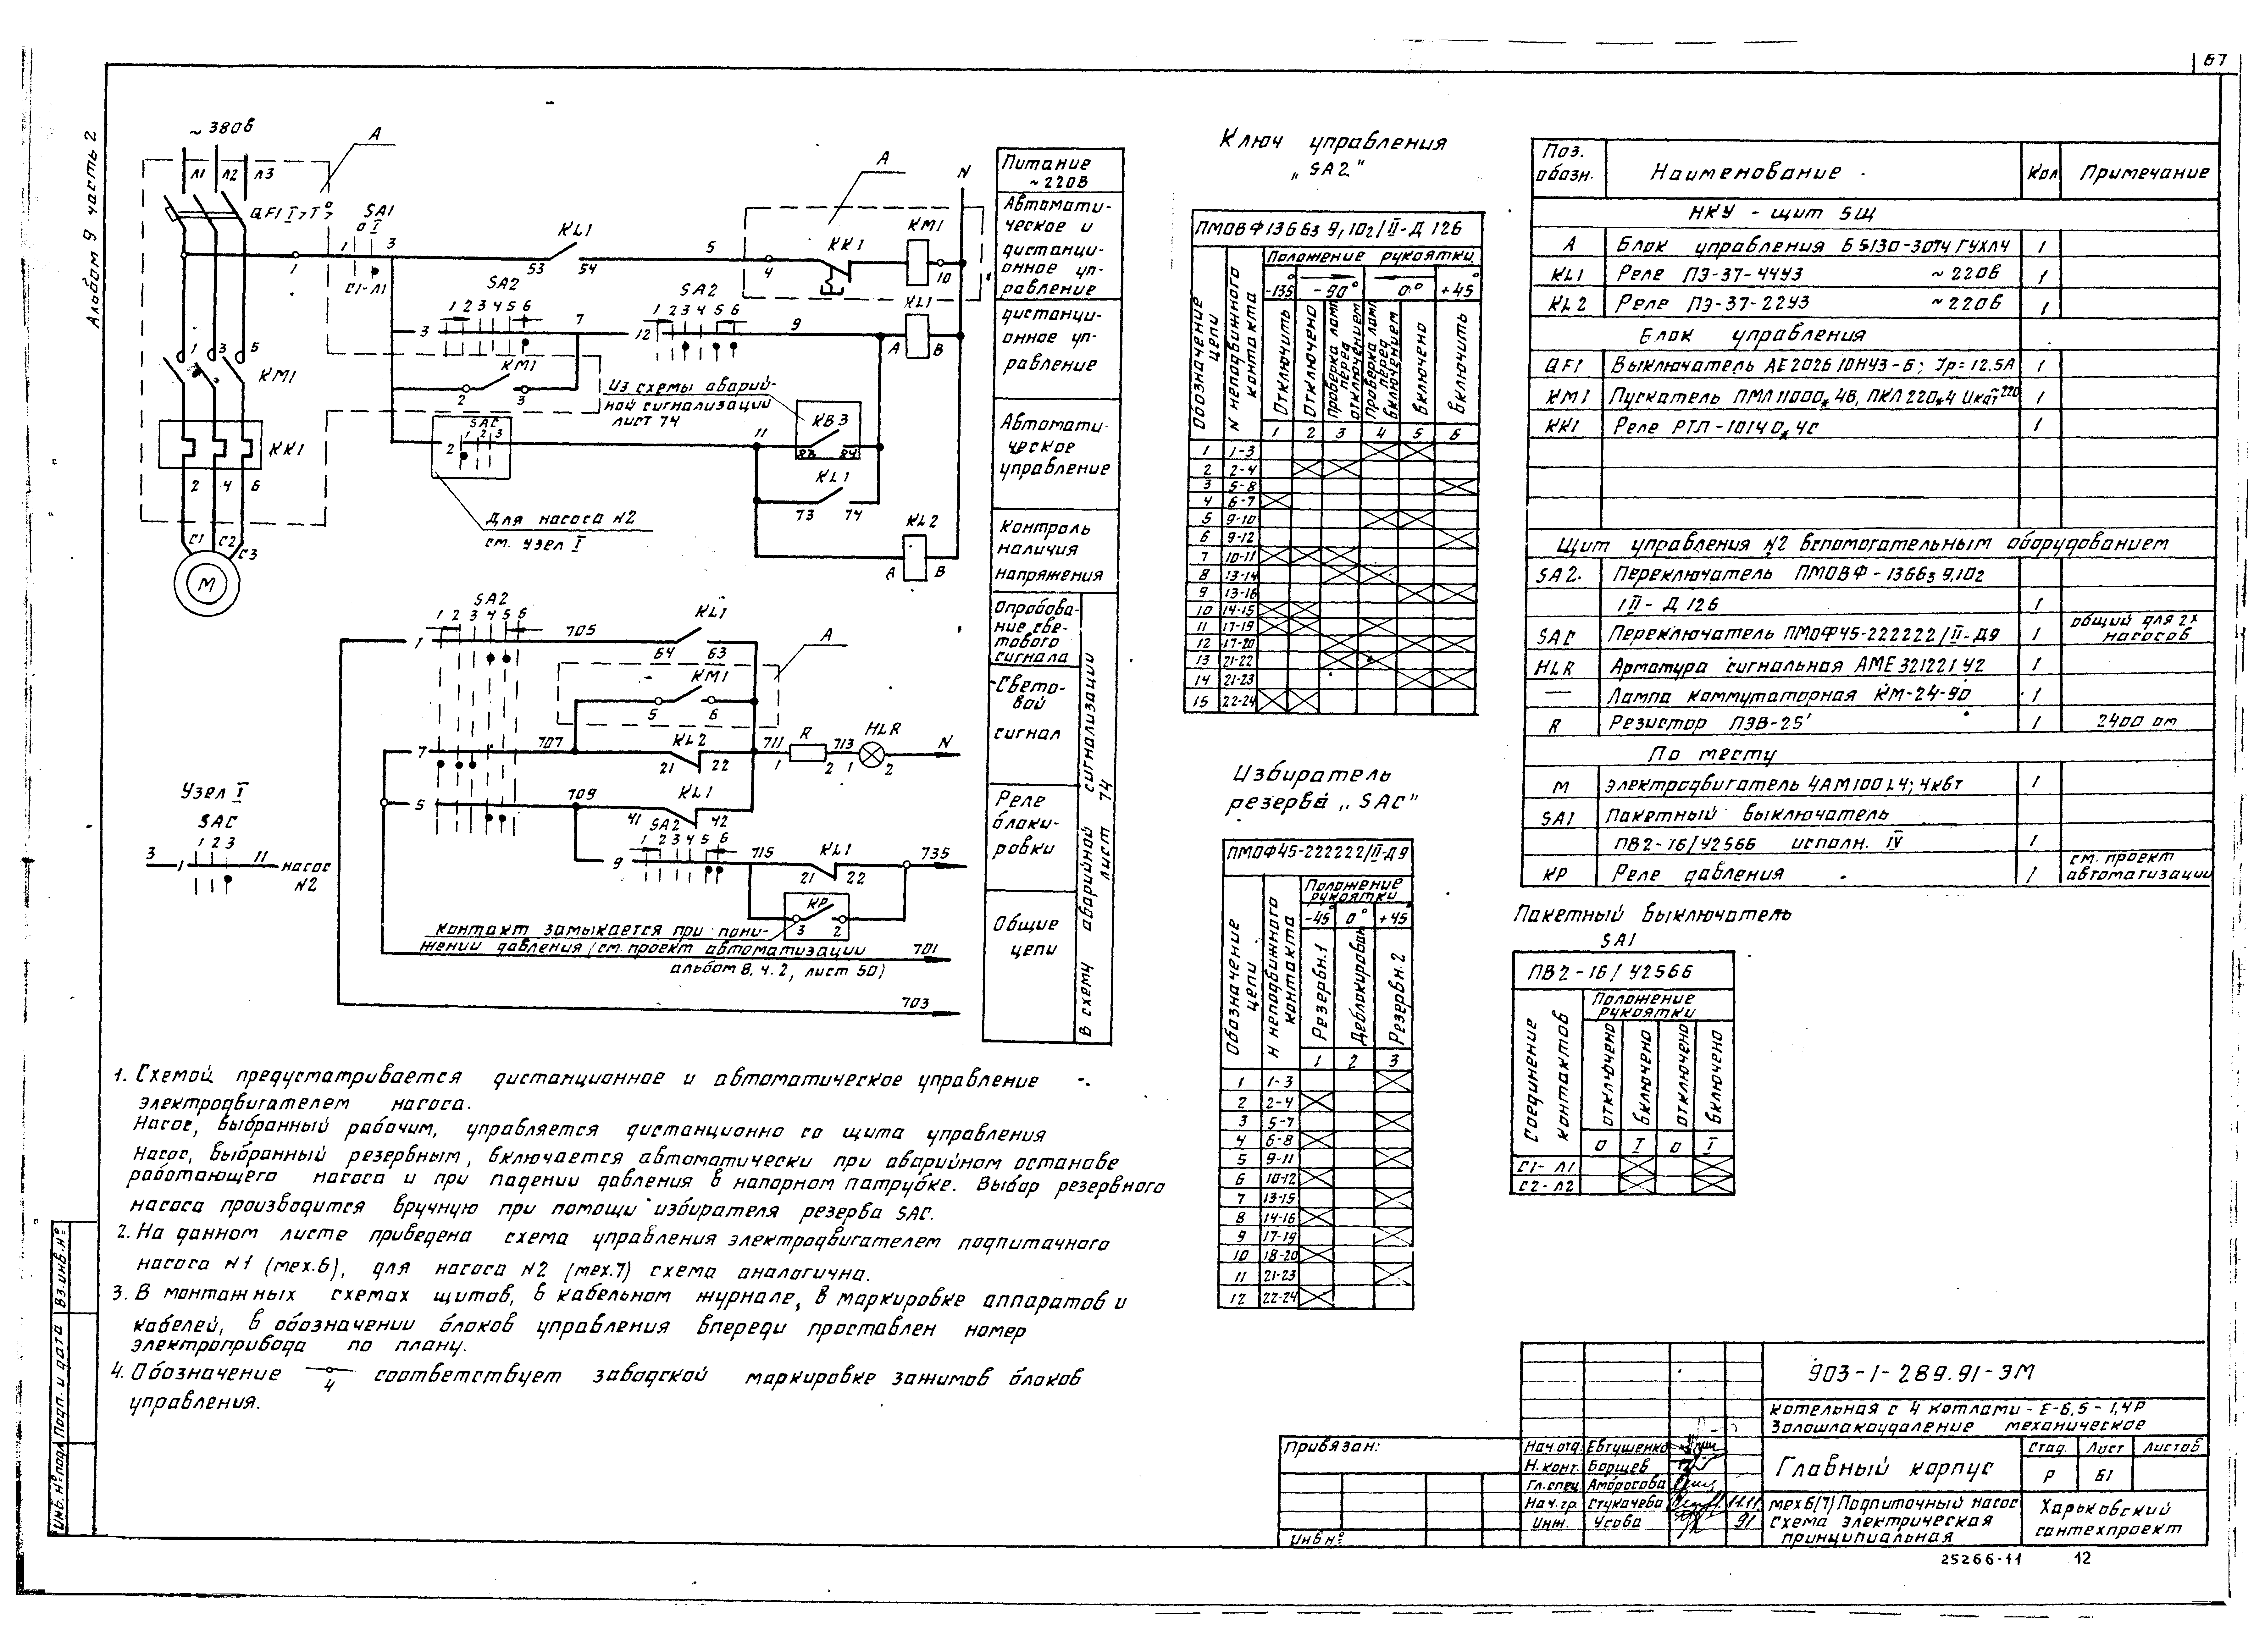 67
Альбом 9 часть 2
~ 380в
А
Л1 Л2 Л3
QF1
SA1
0 I
1 3
С1-Л1
KL1
53 54
5
А
4
KK1
KM1
10
N
1
SA2
1 2 3 4 5 6
3
7
SA2
1 2 3 4 5 6
12
9
KL1
А В
KM1
2 3
1 3 5
KM1
KK1
2 4 6
С1 С2 С3
М
Из схемы аварий-
ной сигнализации
лист 74
SAC
1 2 3
2
11
КВ3
83 84
KL1
73 74
Для насоса N2
см. узел I
KL2
А В
Питание
~ 220В
Автомати-
ческое и
дистанци-
онное уп-
равление
дистанци-
онное уп-
равление
Автомати-
ческое
управление
Контроль
наличия
напряжения
Опробова-
ние све-
тового
сигнала
Свето-
вой
сигнал
Реле
блоки-
ровки
Общие
цепи
В схему аварийной сигнализации
лист 74
SA2
1 2 3 4 5 6
1
705
KL1
64 63
А
KM1
5 6
7
707
KL2
21 22
711
R
1 2
713
HLR
1 2
N
5
709
KL1
41 42
SA2
1 2 3 4 5 6
9
715
KL1
21 22
735
КР
3 2
Контакт замыкается при пони-
жении давления (см. проект автоматизации
альбом 8, ч. 2, лист 50)
701
703
Узел I
SAC
1 2 3
3 1 11 насос
N2
1. Схемой предусматривается дистанционное и автоматическое управление
электродвигателем насоса.
Насос, выбранный рабочим, управляется дистанционно со щита управления
Насос, выбранный резервным, включается автоматически при аварийном останове
работающего насоса и при падении давления в напорном патрубке. Выбор резервного
насоса производится вручную при помощи избирателя резерва SAC.
2. На данном листе приведена схема управления электродвигателем подпиточного
насоса N1 (мех.6), для насоса N2 (мех.7) схема аналогична.
3. В монтажных схемах щитов, в кабельном журнале, в маркировке аппаратов и
кабелей, в обозначении блоков управления впереди проставлен номер
электропривода по плану.
4. Обозначение 4 соответствует заводской маркировке зажимов блоков
управления.
Ключ управления
„SA2"
ПМОВФ 1366з 9,10₂/II-Д 126
Обозначение цепи
N неподвижного контакта
Положение рукоятки
-135° -90° 0° +45°
Отключить
Отключено
Проверка ламп перед отключением
Проверка ламп перед включением
Включено
Включить
1 2 3 4 5 6
1 1-3
2 2-4
3 5-8
4 6-7
5 9-10
6 9-12
7 10-11
8 13-14
9 13-16
10 14-15
11 17-19
12 17-20
13 21-22
14 21-23
15 22-24
Избиратель
резерва „SAC"
ПМОФ45-222222/II-Д9
Обозначение цепи
N неподвижного контакта
Положение
рукоятки
-45° 0° +45°
Резервн.1
Деблокирован
Резервн.2
1 2 3
1 1-3
2 2-4
3 5-7
4 6-8
5 9-11
6 10-12
7 13-15
8 14-16
9 17-19
10 18-20
11 21-23
12 22-24
Поз. обозн. Наименование Кол Примечание
НКУ - щит 5Щ
А Блок управления Б5130-3074 ГУХЛ4 1
KL1 Реле ПЭ-37-44У3 ~ 220в 1
KL2 Реле ПЭ-37-22У3 ~ 220в 1
Блок управления
QF1 Выключатель АЕ2026 10НУ3-Б; Jр=12.5А 1
KM1 Пускатель ПМЛ 11000*4В, ПКЛ 220*4 Uкат~220 1
KK1 Реле РТЛ-1014 0*4С 1
Щит управления N2 вспомогательным оборудованием
SA2. Переключатель ПМОВФ-1366з 9,10₂
/II-Д 126 1
SAC Переключатель ПМОФ45-222222/II-Д9 1 общий для 2х насосов
HLR Арматура сигнальная АМЕ 321221 У2 1
— Лампа коммутаторная КМ-24-90 1
R Резистор ПЭВ-25 1 2400 ом
По месту
М Электродвигатель 4АМ100L4; 4квт 1
SA1 Пакетный выключатель
ПВ2-16/У2566 исполн. IV 1
КР Реле давления 1 см. проект автоматизации
Пакетный выключатель
SA1
ПВ2-16/У2566
Соединение контактов
Положение
рукоятки
отключено
включено
отключено
включено
0 I 0 I
С1-Л1
С2-Л2
903-1-289.91-ЭМ
Котельная с 4 котлами - Е-6,5-1,4Р
Золошлакоудаление механическое
Главный корпус
Стад. Лист Листов
Р 61
мех 6(7) Подпиточный насос
Схема электрическая
принципиальная
Харьковский
сантехпроект
Нач.отд. Евтушенко
Н. конт. Борщев
Гл.спец. Амбросова
Нач. гр. Стукачева 11.11
Инж. Усова 91
Привязан:
Инв №
Инв.№подл. Подп. и дата Вз.инв.№
25266-11 12